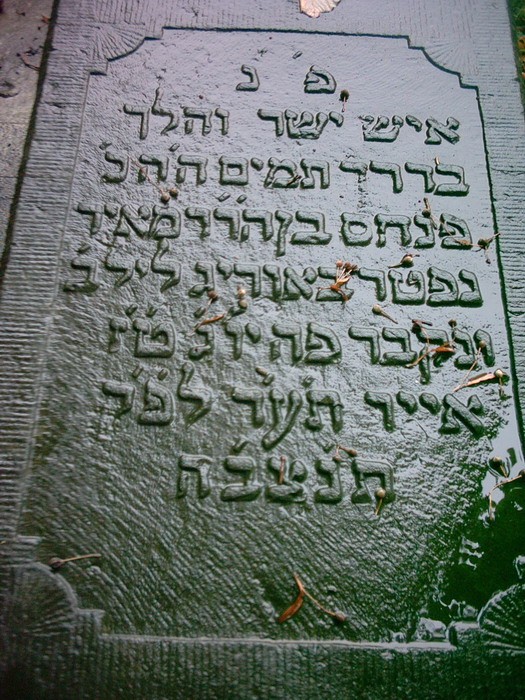 פ נ
איש ישר והלך
בדרך תמים הה
פנחס בן הרר מאיר
נפטר באור ליל ב
ונקבר פה יו ג ט״ז
אייר תעד לפק
תנצבה